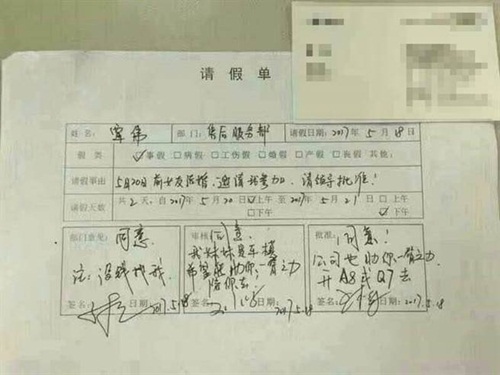 请假单
姓名: 军伟 部门: 售后服务部 请假日期: 2017年5月18日
假类 ☑事假 □病假 □工伤假 □婚假 □产假 □丧假 其他:
请假事由 5月20日前女友结婚,邀请我参加,请领导批准!
请假天数 共2天,自2017年5月20日☑上午 □下午 至2017年5月21日□上午 ☑下午
部门意见: 同意
注:没钱找我
签名: 日期: 5.18
审核: 同意
我妹妹是车模
希望能助你一臂之力
陪你去
签名: 日期: 2017.5.18
批准: 同意!
公司也助你一臂之力
开A8或Q7去
签名: 日期: 2017.5.18